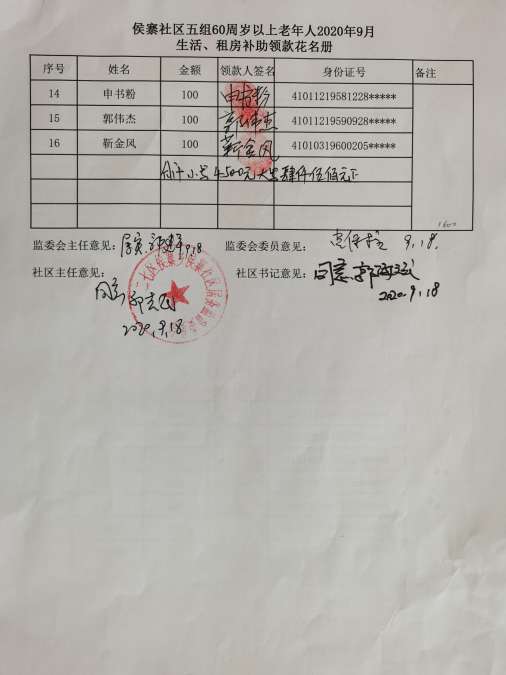 侯寨社区五组60周岁以上老年人2020年9月
生活、租房补助领款花名册
序号 姓名 金额 领款人签名 身份证号 备注
14 申书粉 100 申书粉 41011219581228*****
15 郭伟杰 100 郭伟杰 41011219590928*****
16 靳金风 100 靳金风 41010319600205*****
合计小写4500元大写肆仟伍佰元正
1600
监委会主任意见: 属实 9.18 监委会委员意见: 9.18.
社区主任意见: 同意 社区书记意见: 同意
2020.9.18
2020.9.18